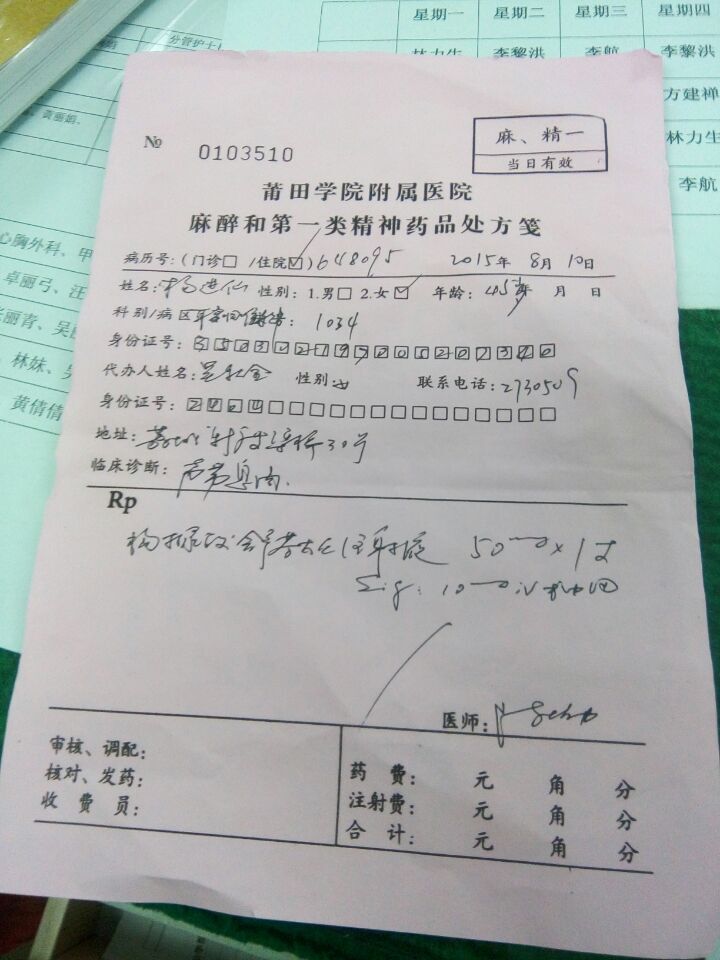 星期一 星期二 星期三 星期四
林力生 李黎洪 李航 李黎洪
方建禅
林力生
李航
分管护士
黄丽娟.
心胸外科、甲
卓丽弓、汪
丽青、吴
林妹、吴
黄倩倩
№ 0103510
麻、精一
当日有效
莆田学院附属医院
麻醉和第一类精神药品处方笺
病历号:(门诊□ /住院☑)648095 2015年 8月 10日
姓名: 性别: 1.男□ 2.女☑ 年龄: 45岁 月 日
科别/病区 : 1034
身份证号:
代办人姓名: 性别:女 联系电话:2730509
身份证号:
地址: 30号
临床诊断: 声带息肉.
Rp
枸橼酸舒芬太尼注射液 50 × 1支
Sig: 10 iv
医师:
审核、调配:
核对、发药:
收 费 员:
药 费: 元 角 分
注射费: 元 角 分
合 计: 元 角 分